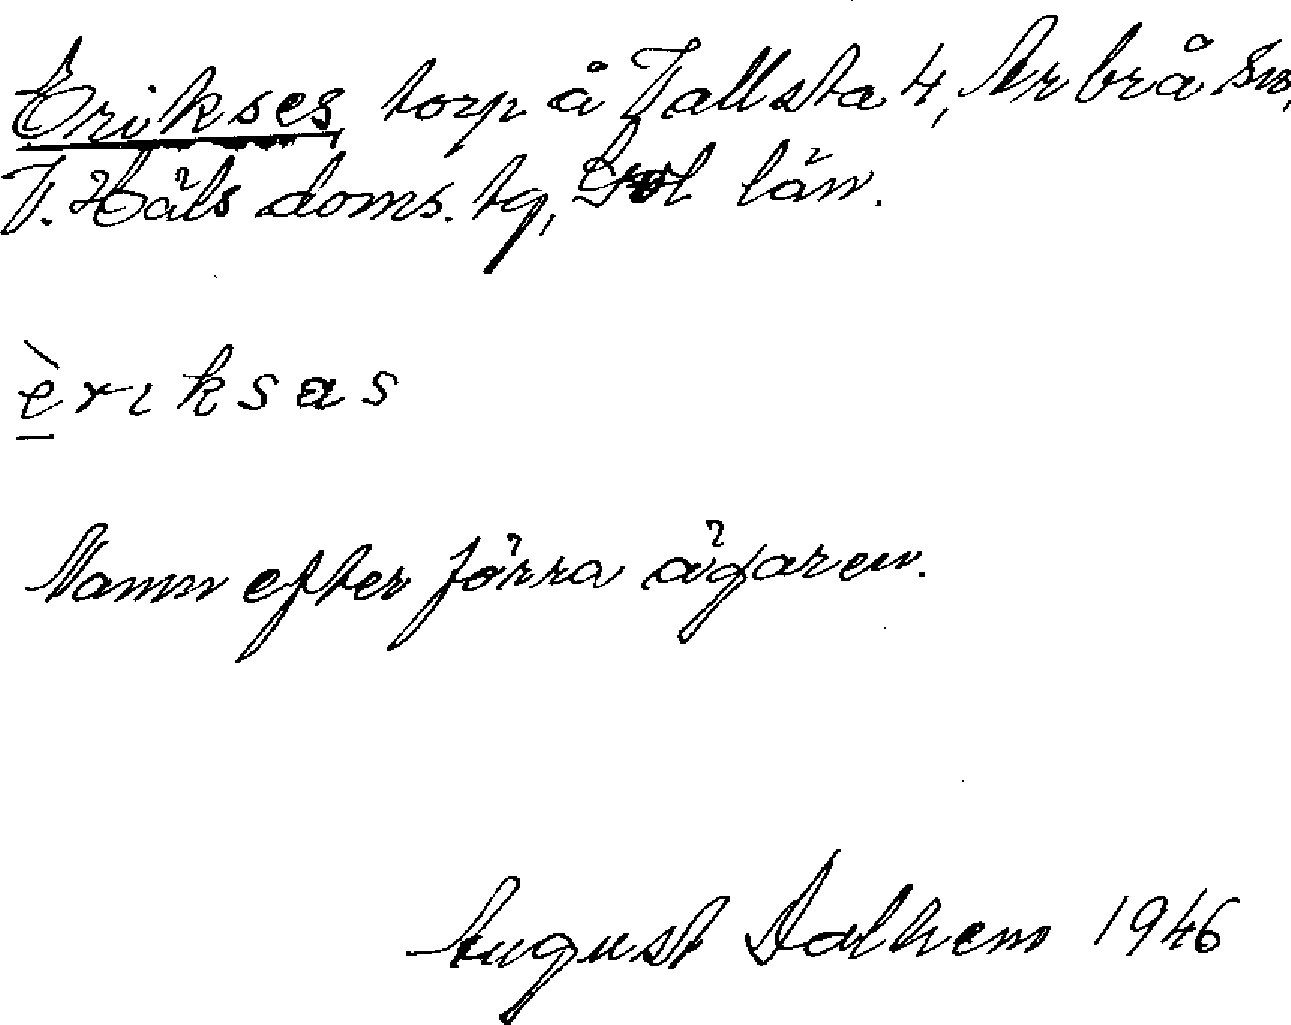 Erikses, torp å Vallsta 4, Arbrå sn,
V. Häls doms. tg, Gvl län.
èriksas
Namn efter förra ägaren.
August Dalhem 1946